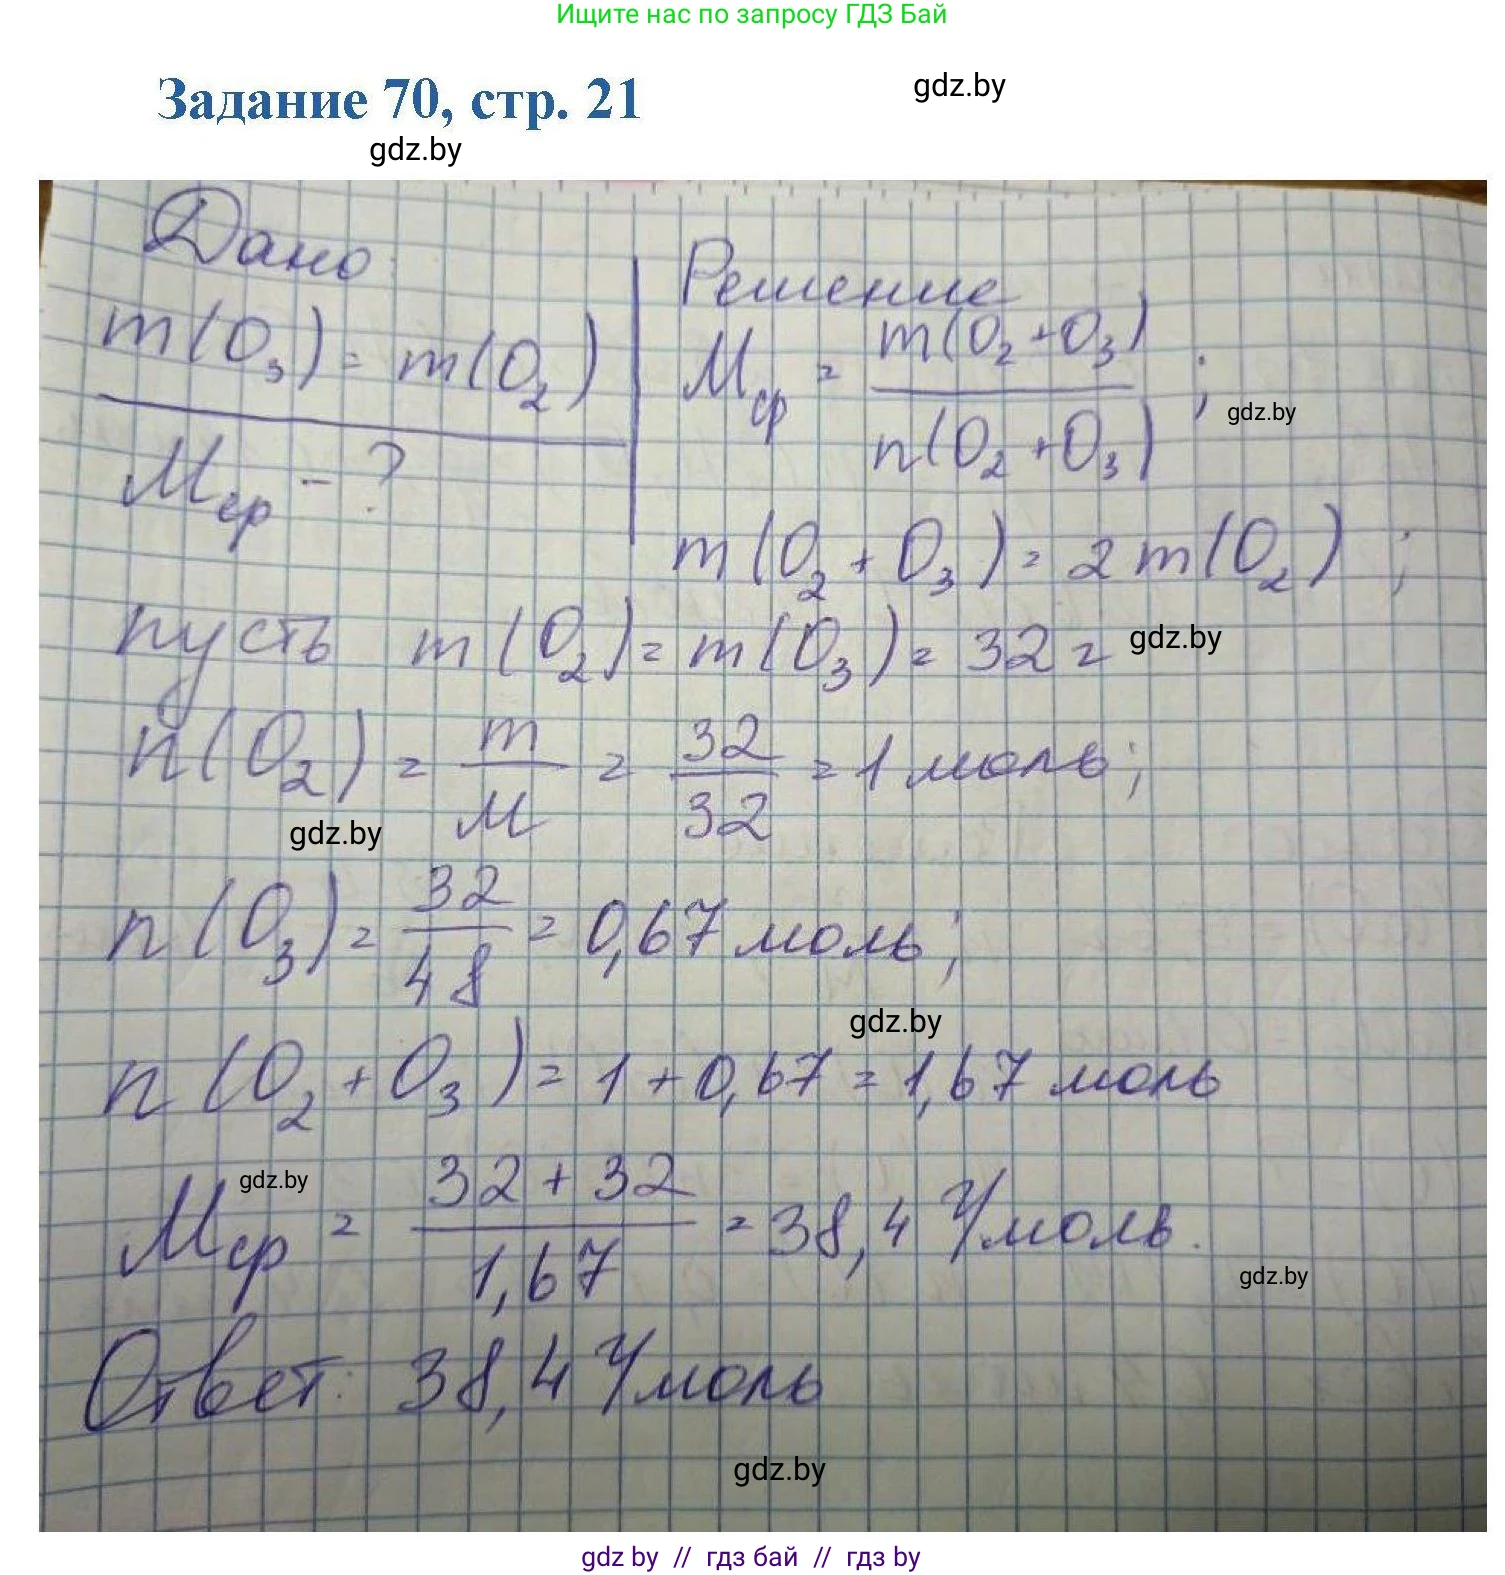 Ищите нас по запросу ГДЗ Бай
Задание 70, стр. 21
gdz.by
gdz.by
Дано:
m(O₃) = m(O₂)
Mср - ?
Решение
Mср = m(O₂+O₃) / n(O₂+O₃) ;
gdz.by
m(O₂+O₃) = 2m(O₂) ;
пусть m(O₂) = m(O₃) = 32 г
gdz.by
n(O₂) = m/M = 32/32 = 1 моль;
gdz.by
n(O₃) = 32/48 = 0,67 моль;
gdz.by
n(O₂+O₃) = 1+0,67 = 1,67 моль
gdz.by
Mср = (32+32)/1,67 = 38,4 г/моль.
gdz.by
Ответ: 38,4 г/моль
gdz.by
gdz by // гдз бай // гдз by